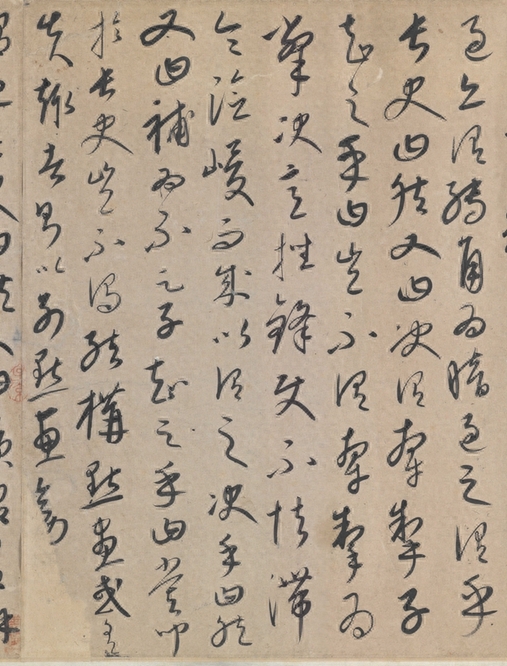 過亦謂轉角為暗過之謂乎
長史曰然又曰決謂牽掣子
知之乎曰豈不謂牽掣為
撆決意挫鋒使不怯滯
令險峻而成以謂之決乎曰然
又曰補為不足子知之乎曰嘗聞
於長史豈不謂結構點畫或有
失趣者則以別點畫旁